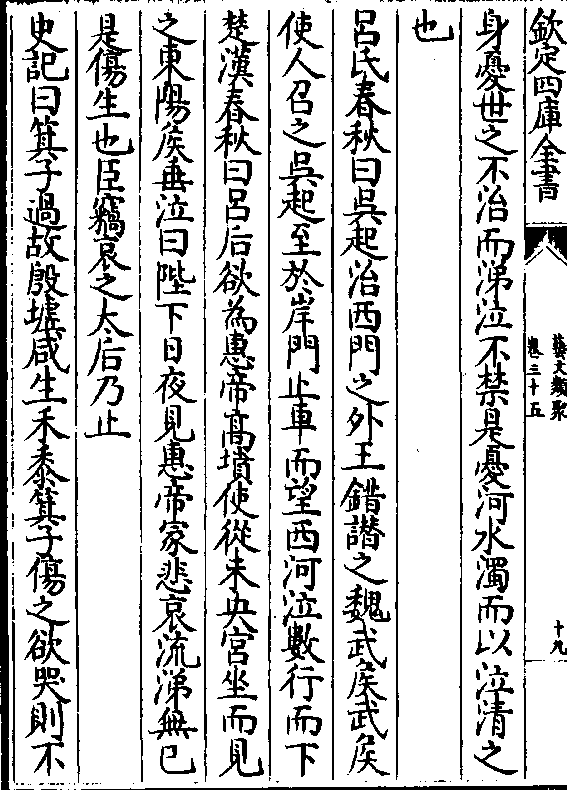 欽定四庫全書
藝文類聚
卷三十五
十九
身憂世之不治而涕泣不禁是憂河水濁而以泣清之
也
呂氏春秋曰吳起治西門之外王錯譖之魏武侯武侯
使人召之吳起至於岸門止車而望西河泣數行而下
楚漢春秋曰呂后欲為惠帝髙墳使從未央宫坐而見
之東陽侯垂泣曰陛下日夜見惠帝冢悲哀流涕無已
是傷生也臣竊哀之太后乃止
史記曰箕子過故殷墟咸生禾黍箕子傷之欲哭則不